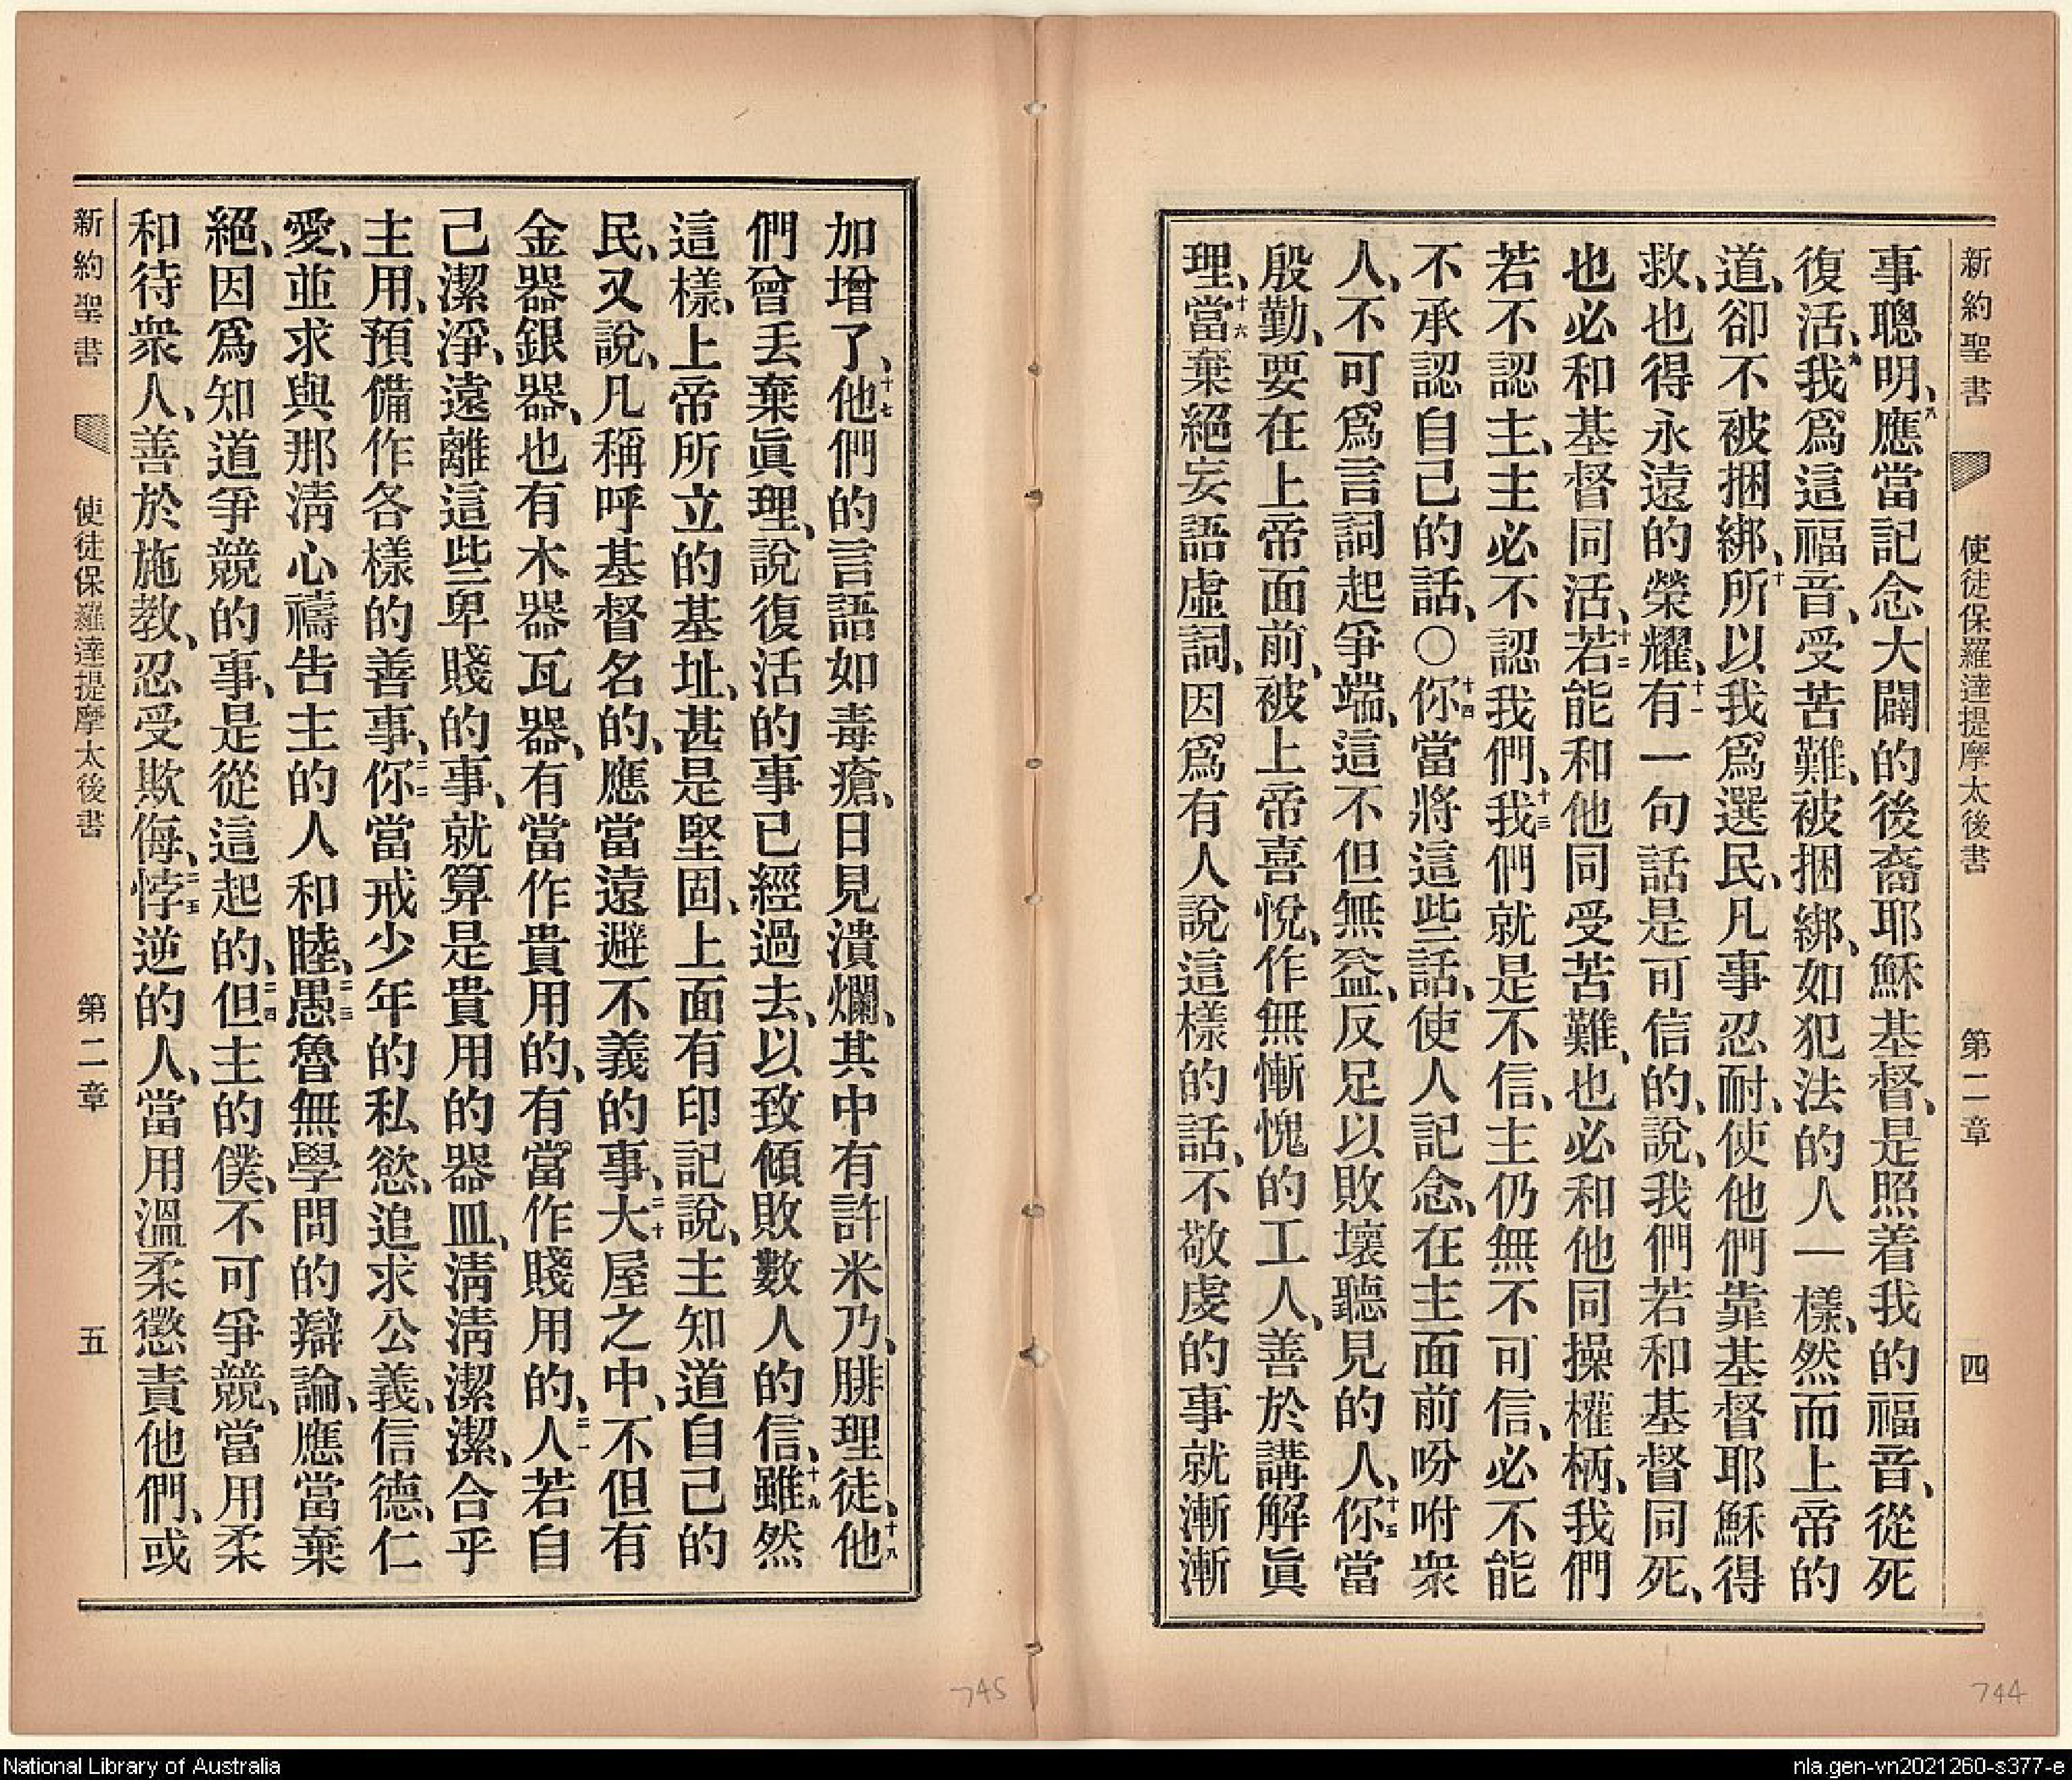 新約聖書 使徒保羅達提摩太後書 第二章 四
事聰明、八應當記念大闢的後裔耶穌基督、是照着我的福音、從死
復活、九我爲這福音、受苦難、被捆綁、如犯法的人一樣、然而上帝的
道、卻不被捆綁、十所以我爲選民、凡事忍耐、使他們靠基督耶穌得
救、也得永遠的榮耀、十一有一句話是可信的、說、我們若和基督同死、
也必和基督同活、十二若能和他同受苦難、也必和他同操權柄、我們
若不認主、主必不認我們、十三我們就是不信、主仍無不可信、必不能
不承認自己的話、○十四你當將這些話、使人記念、在主面前吩咐衆
人、不可爲言詞起爭端、這不但無益、反足以敗壞聽見的人、十五你當
殷勤、要在上帝面前、被上帝喜悅、作無慚愧的工人、善於講解眞
理、十六當棄絕妄語虛詞、因爲有人說這樣的話、不敬虔的事就漸漸
加增了、十七他們的言語如毒瘡、日見潰爛、其中有許米乃、腓理徒、十八他
們曾丟棄眞理、說復活的事已經過去、以致傾敗數人的信、十九雖然
這樣、上帝所立的基址、甚是堅固、上面有印記說、主知道自己的
民、又說、凡稱呼基督名的、應當遠避不義的事、二十大屋之中、不但有
金器銀器、也有木器瓦器、有當作貴用的、有當作賤用的、二一人若自
己潔淨、遠離這些卑賤的事、就算是貴用的器皿、淸淸潔潔、合乎
主用、預備作各樣的善事、二二你當戒少年的私慾、追求公義、信德、仁
愛、並求與那淸心禱告主的人和睦、二三愚魯無學問的辯論、應當棄
絕、因爲知道爭競的事、是從這起的、二四但主的僕、不可爭競、當用柔
和待衆人、善於施教、忍受欺侮、二五悖逆的人、當用溫柔懲責他們、或
新約聖書 使徒保羅達提摩太後書 第二章 五
745
744
National Library of Australia
nla.gen-vn2021260-s377-e